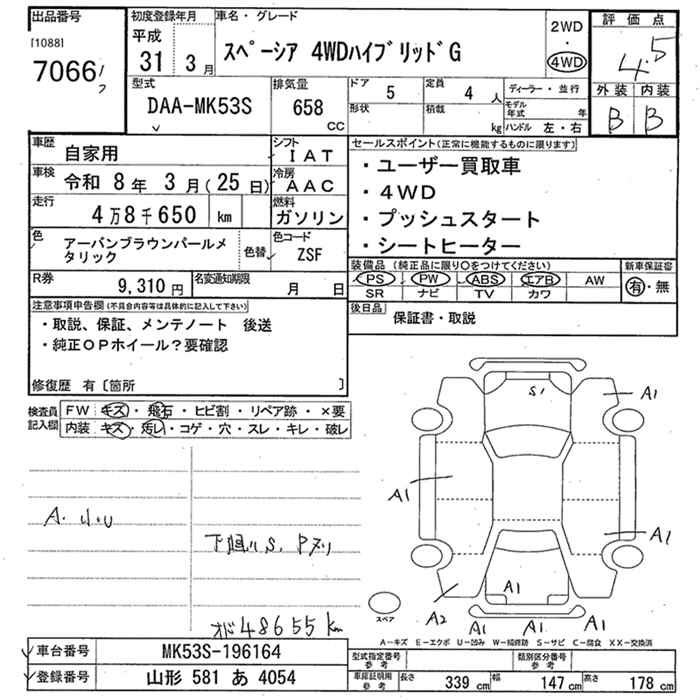 出品番号
[1088]
7066
初度登録年月
平成
31 3月
車名・グレード
スペーシア 4WDハイブリッドG
2WD
・
4WD
評価点
4.5
外装 内装
B B
型式
DAA-MK53S
排気量
658
cc
ドア 5
形状
定員 4 人
積載 kg
ディーラー・並行
モデル年式 年
ハンドル 左・右
車歴
自家用
シフト
IAT
車検
令和 8年 3月(25日)
冷房
AAC
走行
4万8千650 km
燃料
ガソリン
色
アーバンブラウンパールメタリック
色替
色コード
ZSF
R券
9,310円
名変通知期限
月 日
セールスポイント(正常に機能するものに限ります)
・ユーザー買取車
・4WD
・プッシュスタート
・シートヒーター
装備品 (純正品に限り○をつけてください)
PS PW ABS エアB AW
SR ナビ TV カワ
新車保証書
有・無
後日品
保証書・取説
注意事項申告欄(不具合内容等は具体的に記入して下さい)
・取説、保証、メンテノート 後送
・純正OPホイール?要確認
修復歴 有〔箇所 〕
検査員記入欄
FW キズ・飛石・ヒビ割・リペア跡・×要
内装 キズ・汚レ・コゲ・穴・スレ・キレ・破レ
A.小U
下廻りS、Pヌリ
48655km
S1
A1
A1
A1
A1
A2
A1
A1
A1
スペア
A-キズ E-エクボ U-凹み W-補修跡 S-サビ C-腐食 XX-交換済
車台番号
MK53S-196164
登録番号
山形 581 あ 4054
型式指定番号 参考
類別区分番号 参考
車庫証明用 参考
長さ 339 cm
幅 147 cm
高さ 178 cm